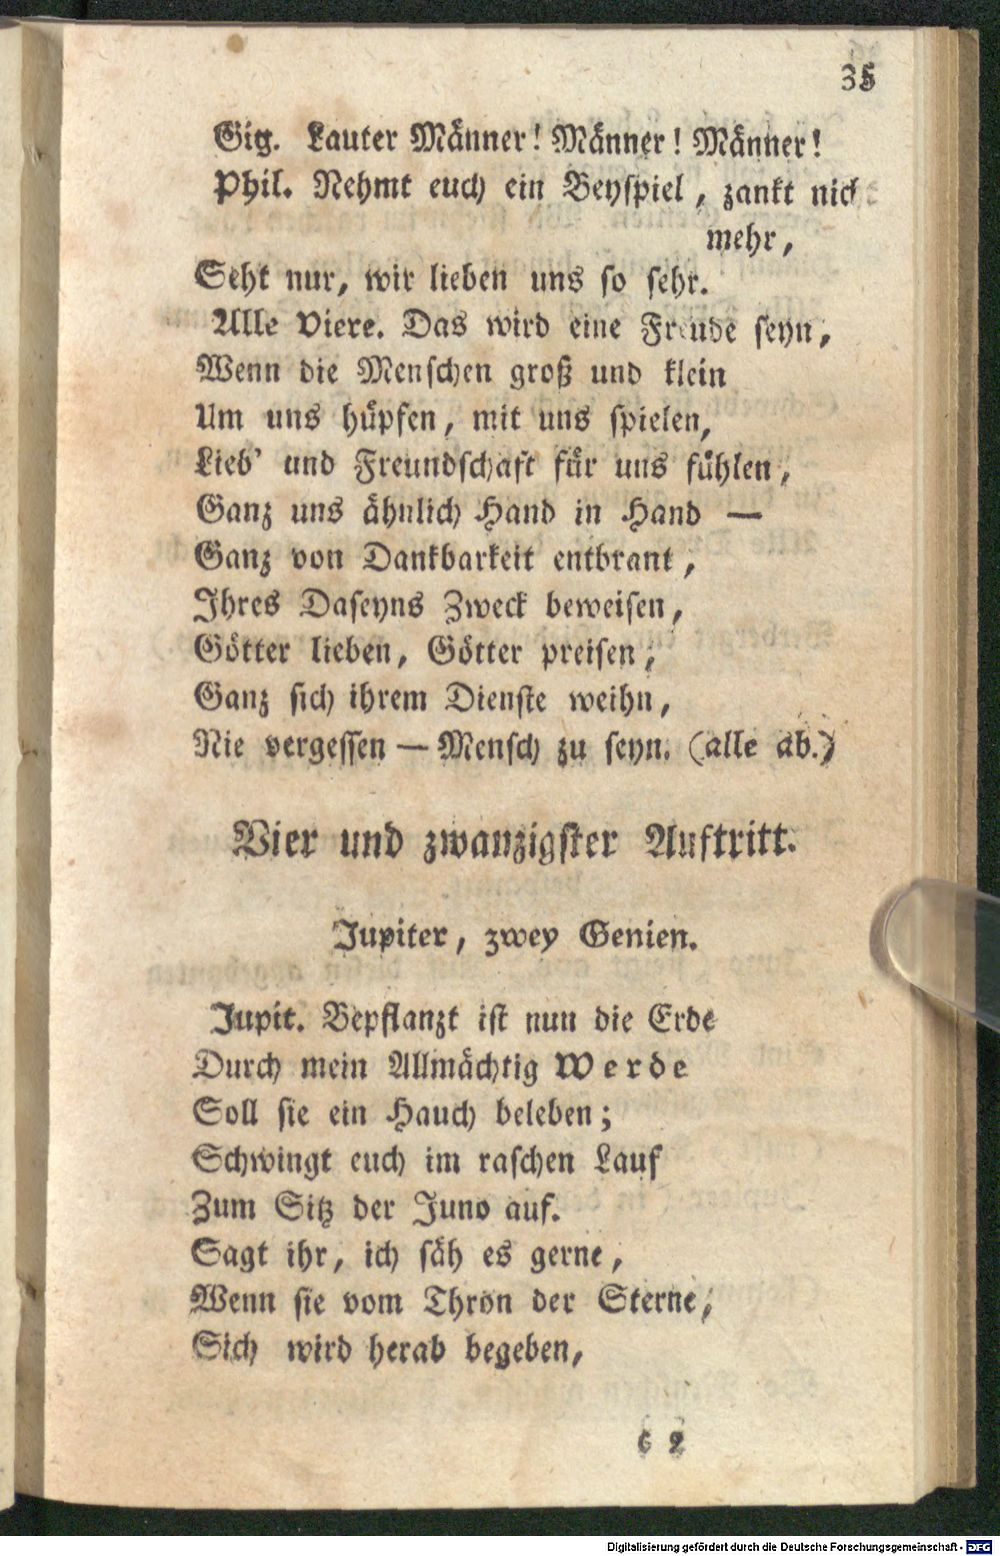 35
Gig. Lauter Männer! Männer! Männer!
Phil. Nehmt euch ein Beyspiel, zankt nich
mehr,
Seht nur, wir lieben uns so sehr.
Alle Viere. Das wird eine Freude seyn,
Wenn die Menschen groß und klein
Um uns hüpfen, mit uns spielen,
Lieb' und Freundschaft für uns fühlen,
Ganz uns ähnlich Hand in Hand —
Ganz von Dankbarkeit entbrant,
Ihres Daseyns Zweck beweisen,
Götter lieben, Götter preisen,
Ganz sich ihrem Dienste weihn,
Nie vergessen — Mensch zu seyn. (alle ab.)
Vier und zwanzigster Auftritt.
Jupiter, zwey Genien.
Jupit. Bepflanzt ist nun die Erde
Durch mein Allmächtig Werde
Soll sie ein Hauch beleben;
Schwingt euch im raschen Lauf
Zum Sitz der Juno auf.
Sagt ihr, ich säh es gerne,
Wenn sie vom Thron der Sterne,
Sich wird herab begeben,
c 2
Digitalisierung gefördert durch die Deutsche Forschungsgemeinschaft - DFG